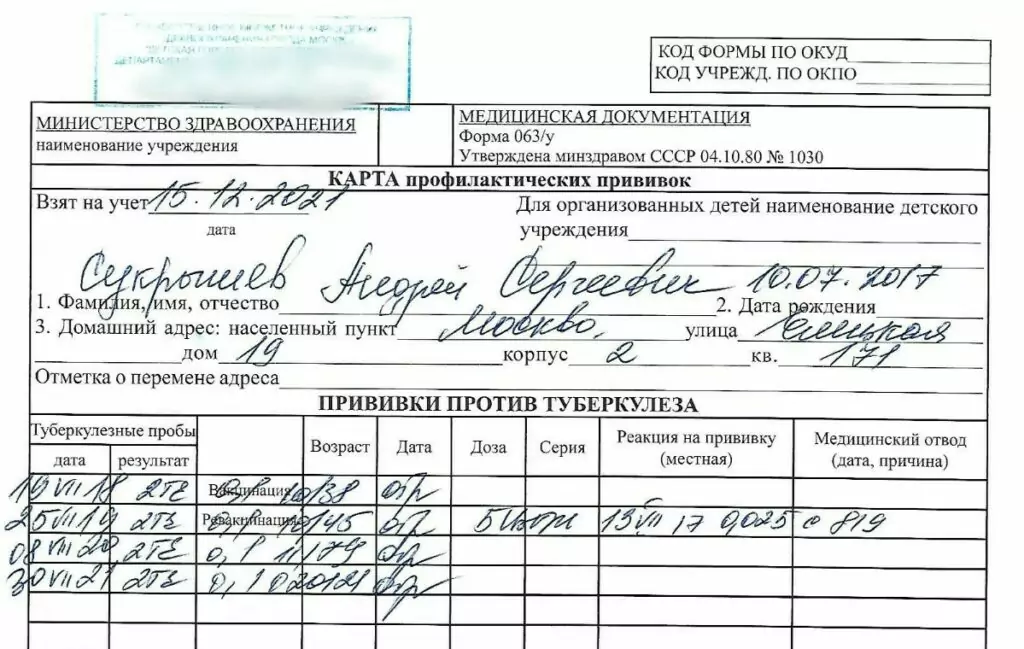 КОД ФОРМЫ ПО ОКУД
КОД УЧРЕЖД. ПО ОКПО
МИНИСТЕРСТВО ЗДРАВООХРАНЕНИЯ
наименование учреждения
МЕДИЦИНСКАЯ ДОКУМЕНТАЦИЯ
Форма 063/у
Утверждена минздравом СССР 04.10.80 № 1030
КАРТА профилактических прививок
Взят на учет 15.12.2021
дата
Для организованных детей наименование детского
учреждения
Сукрышев Андрей Сергеевич 10.07.2017
1. Фамилия, имя, отчество 2. Дата рождения
3. Домашний адрес: населенный пункт Москва, улица Елецкая
дом 19 корпус 2 кв. 171
Отметка о перемене адреса
ПРИВИВКИ ПРОТИВ ТУБЕРКУЛЕЗА
Туберкулезные пробы
дата результат Возраст Дата Доза Серия Реакция на прививку (местная) Медицинский отвод (дата, причина)
19 VII 18 2ТЕ Вакцинация
25 VII 19 2ТЕ Ревакцинация 13 VII 17 0,025 с 819
08 VII 20 2ТЕ
30 VII 21 2ТЕ